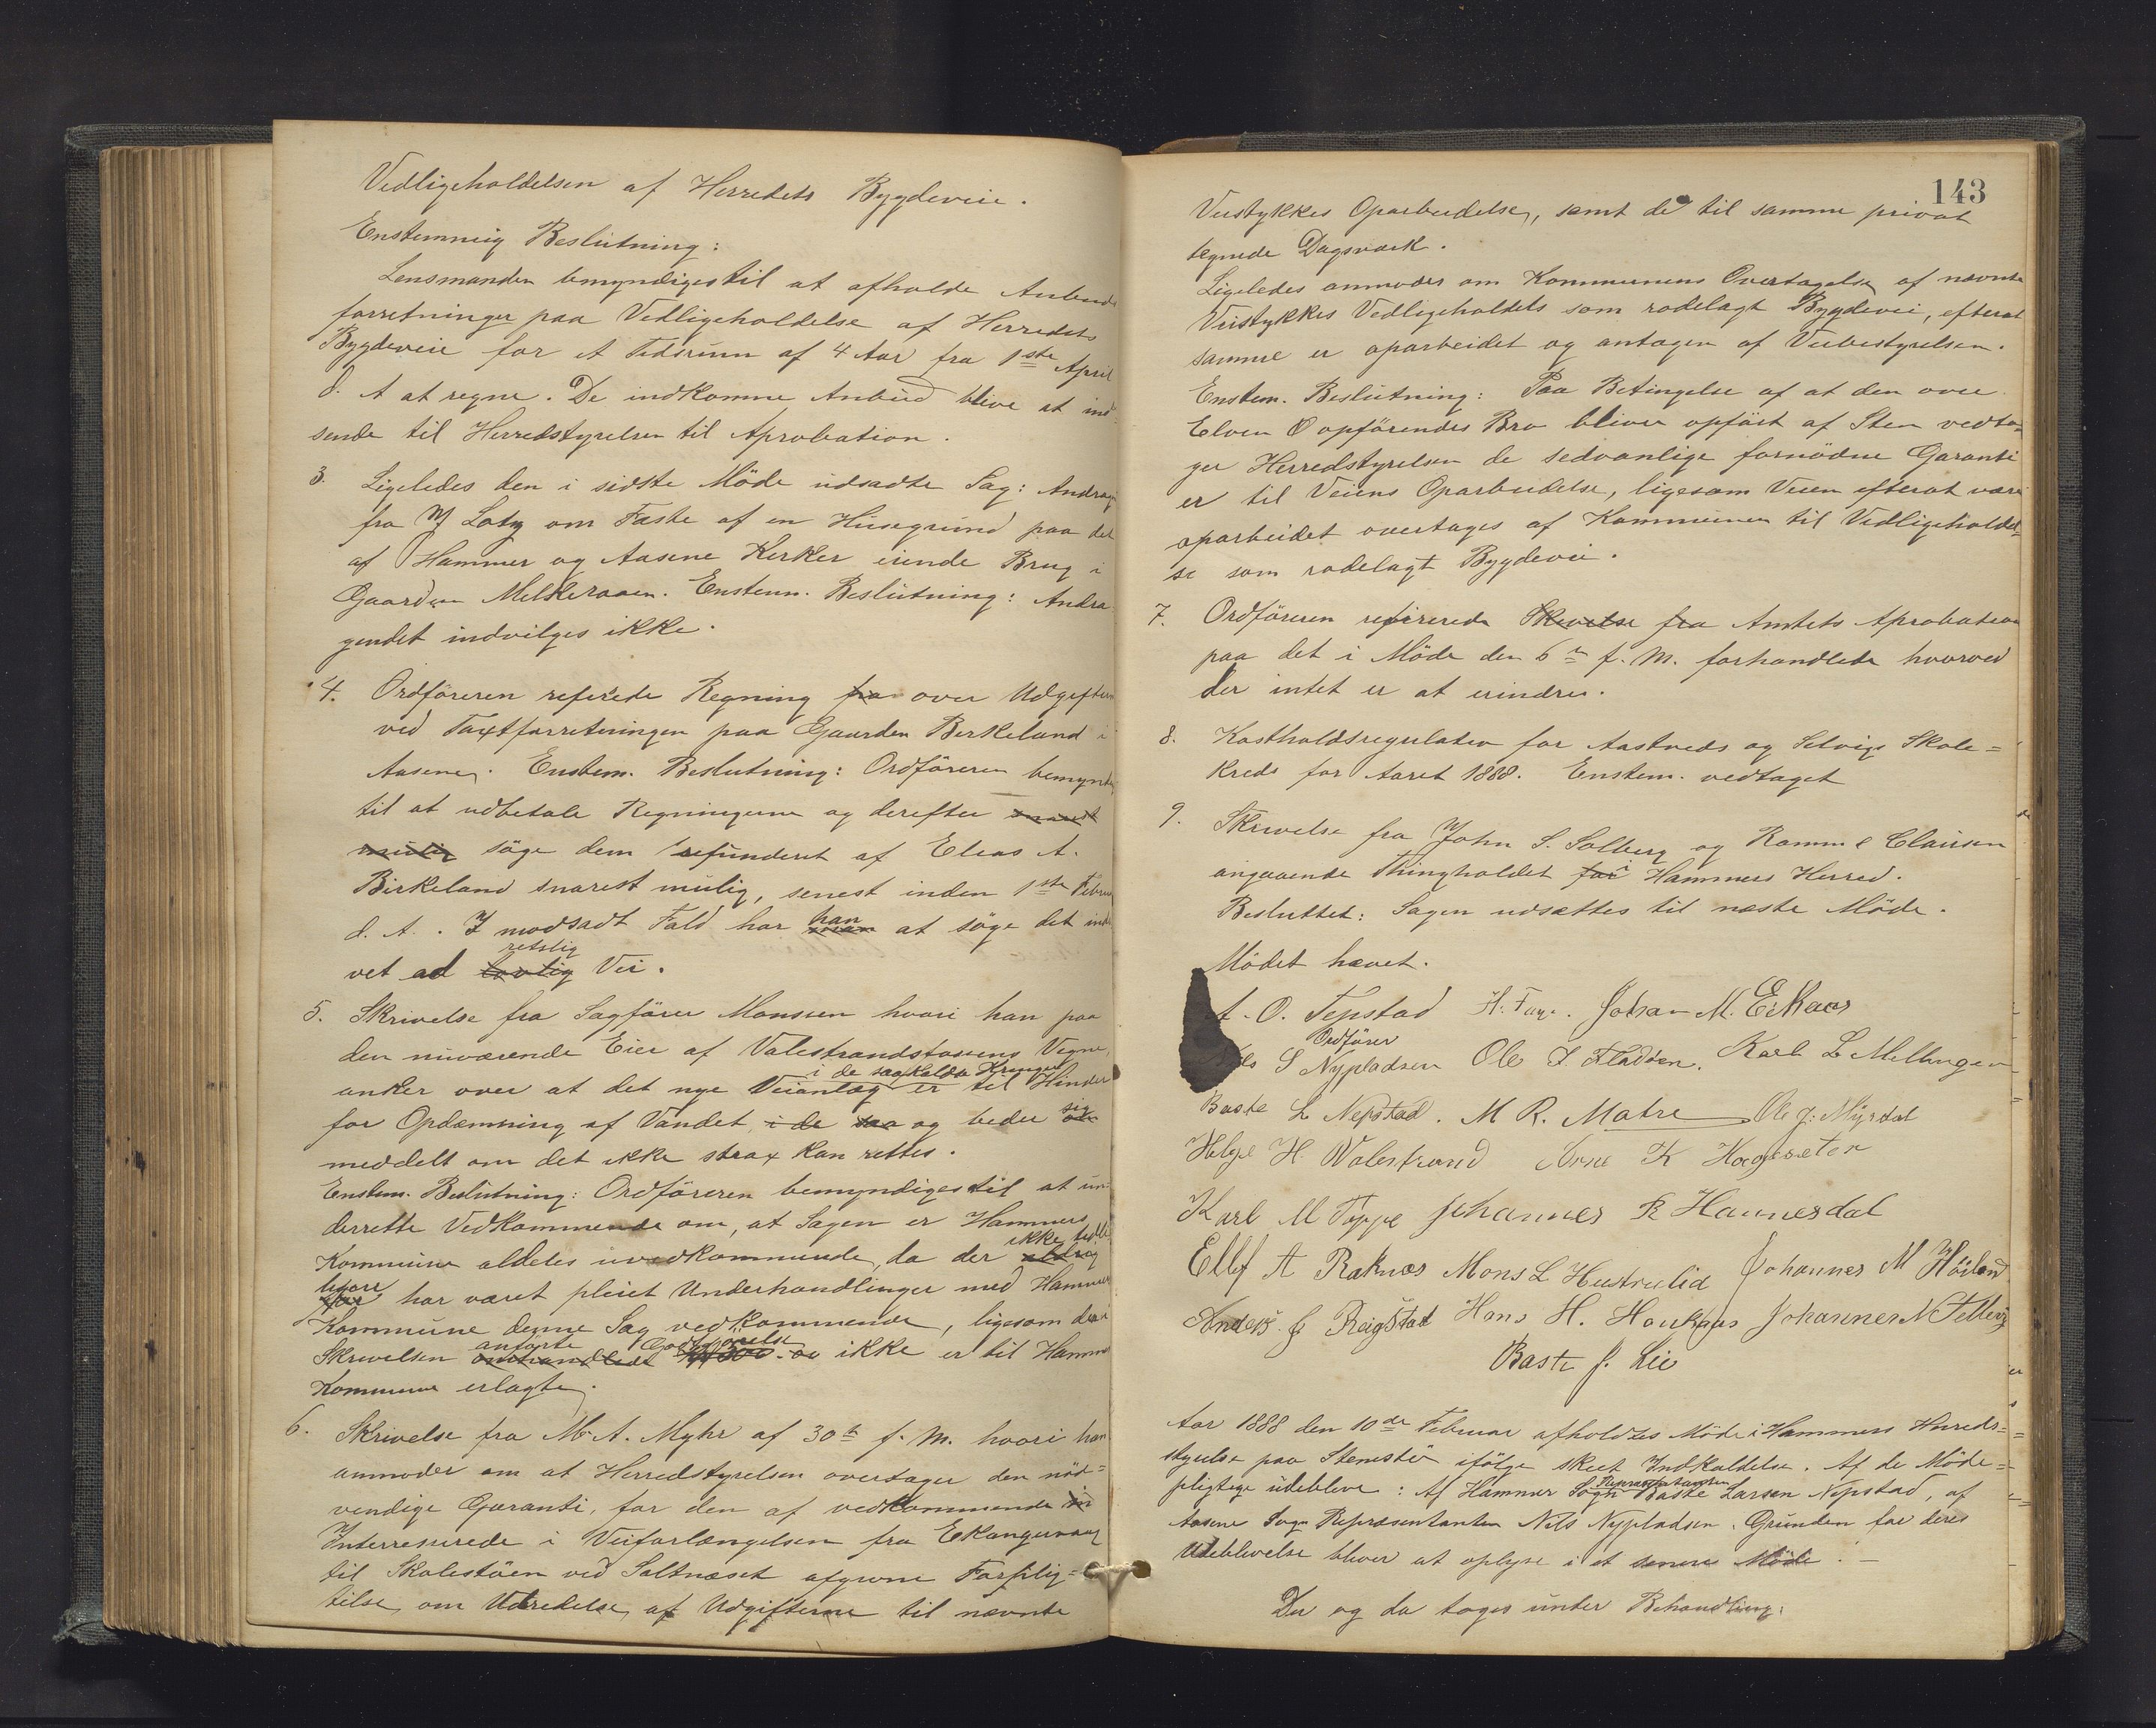 Vedligeholdelsen af Herredets Bygdeveie.
Enstemmig Beslutning:
Lensmanden bemyndiges til at afholde Anbuds
forretninger paa Vedligeholdelse af Herredets
Bygdeveie for et Tidsrum af 4 Aar fra 1ste April
d. A at regne. De indkomne Anbud blive at ind-
sende til Herredstyrelsen til Aprobation.
3. Ligeledes den i sidste Möde udsadte Sag: Andrag
fra J Lotz om Fæste af en Husegrund paa det
af Hammer og Aasene Kerker eiende Brug i
Gaarden Melkeraaen. Enstem. Beslutning: Andra
gendet indvilges ikke.
4. Ordföreren refererede Regning fra over Udgiftern
ved Taxtforretningen paa Gaarden Berkeland i
Aasene. Enstem. Beslutning: Ordföreren bemynd
til at udbetale Regningerne og derefter snarest
mulig söge dem refunderet af Elias A.
Birkeland snarest mulig, senest inden 1ste Febru
d. A. I modsadt Fald har man han at söge det ind
vet ad lovlig retslig Vei.
5. Skrivelse fra Sagförer Monssen hvori han paa
den nuværende Eier af Valestrandsfossens Vegne,
anker over at det nye Veianlæg i de saakaldte Kranger er til Hinder
for Opdæmning af Vandet, i de saa og beder om sig
meddelt om det ikke strax kan rettes.
Enstem. Beslutning: Ordföreren bemyndiges til at un-
derrette Vedkommende om, at Sagen er Hammers
Kommune aldeles uvedkommende, da der aldrig ikke tidli
före har været pleiet Underhandlinger med Hammer
Kommune denne Sag vedkommende, ligesom den i
Skrivelsen omhandledt anførte Godtgörelse ikke er til Hammer
Kommune erlagte.
6. Skrivelse fra M. A. Myhr af 30te f. M. hvori han
anmoder om at Herredstyrelsen overtager den nöd-
vendige Garanti, for den af vedkommende in
Interreserede i Veiforlængelsen fra Ekangervaag
til Skolestöen ved Saltnæset afgivne Forplig-
telse, om Udredelse af Udgifterne til nævnte
143
Veistykkes Oparbeidelse, samt de til samme privat
tegnede Dagsværk.
Ligeledes anmodes om Kommunens Overtagelse af nævnte
Veistykkes Vedligeholdels som rodelagt Bygdevei, efterat
samme er oparbeidet og antagen af Veibestyrelsen.
Enstem. Beslutning: Paa Betingelse af at den over
Elven opförendes Bro bliver opfört af Sten vedta-
ger Herredstyrelsen de sedvanlige fornödne Garanti
er til Veiens Oparbeidelse, ligesom Veien efterat være
oparbeidet overtages af Kommunen til Vedligeholdel-
se som rodelagt Bygdevei.
7. Ordföreren refererede Skrivelse fra Amtets Aprobation
paa det i Möde den 6te f. M. forhandlede hvorved
der intet er at erindre.
8. Kostholdsregulativ for Aastveds og Selvigs Skole-
kreds for Aaret 1888. Enstem. vedtaget
9. Skrivelse fra John S. Solberg og Ramm & Clausen
angaaende Thingholdet for i Hammers Herred.
Besluttet: Sagen udsættes til næste Möde.
Mödet hævet.
A. O. Tepstad H. Faye. Johan M. Eikaas
Ordfører
Nils S Nypladsen Ole J. Fladöen. Karl L Mellingen
Baste L Nepstad. M R. Matre Ole J. Myrdal
Helge H. Valestrand Arne K Hagesæter
Karl M Toppe Johannes R Hannesdal
Ellef A Raknæs Mons L Hustrulid Johannes M Höiland
Anders J Reigstad Hans H. Haukaas Johannes N Tellevig
Baste J. Lie
Aar 1888 den 10de Februar afholdtes Möde i Hammers Herreds-
styrelse paa Stenestö ifölge skeet Indkaldelse. Af de Möde-
pligtige udebleve: Af Hammer Sogn Representanten Baste Larsen Nepstad, af
Aasene Sogn Representanten Nils Nypladsen. Grunden for deres
Udeblivelse bliver at oplyse i et senere Möde. —
Der og da toges under Behandling: